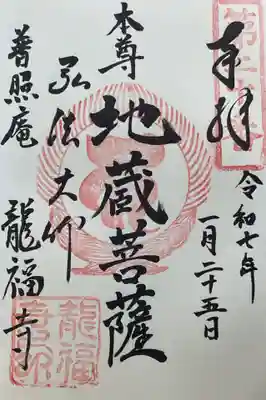 奉拝
令和七年
一月二十五日
本尊
地蔵菩薩
弘法大師
普照庵
龍福寺
龍福